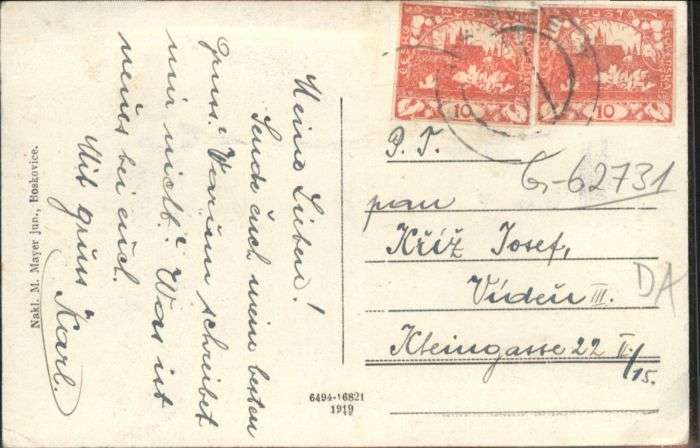 Meine Lieben!
Sende euch mein besten
gruss. Warum schreibet
mir nicht? Was ist
neues bei euch.
Mit gruss Karl.
Nakl. M. Mayer jun., Boskovice.
6494-16821
1919
10
10
P. T.
G-62731
pan
Kříž Josef,
Vídeň III.
DA
Kleingasse 22 II/15.